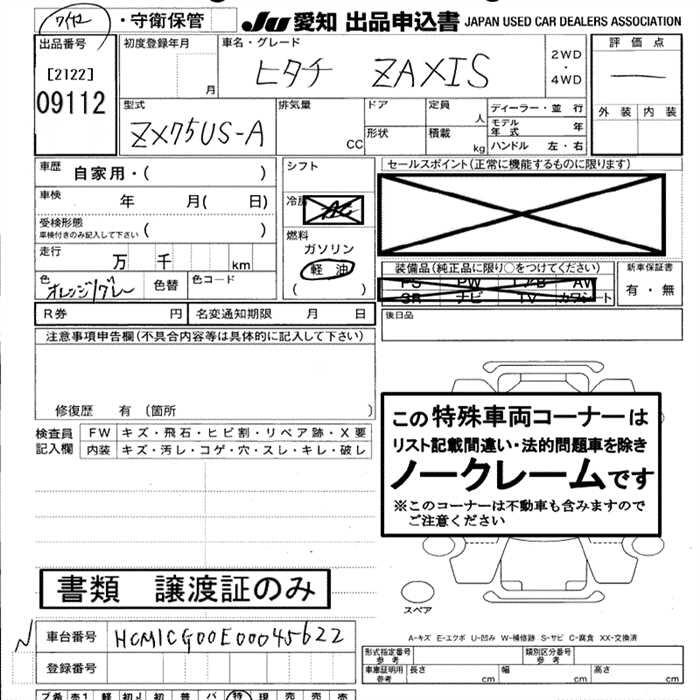 ・守衛保管
JU 愛知 出品申込書 JAPAN USED CAR DEALERS ASSOCIATION
出品番号
[2122]
09112
初度登録年月
月
車名・グレード
ヒタチ ZAXIS
2WD
・
4WD
評価点
外装 内装
型式
ZX75US-A
排気量
CC
ドア
形状
定員
人
積載
kg
ディーラー・並 行
モデル年式 年
ハンドル 左・右
車歴 自家用・( )
車検 年 月( 日)
受検形態
車検付きのみ記入して下さい ( )
走行 万 千 km
色 オレンジ/グレー 色替 色コード
R券 円 名変通知期限 月 日
シフト
冷房 AC
燃料
ガソリン
軽油
( )
セールスポイント(正常に機能するものに限ります)
装備品(純正品に限り○をつけてください)
PS PW エアB AW
SR ナビ TV カワシート
新車保証書
有・無
後日品
注意事項申告欄(不具合内容等は具体的に記入して下さい)
修復歴 有 (箇所 )
検査員記入欄
FW キズ・飛石・ヒビ割・リペア跡・X要
内装 キズ・汚レ・コゲ・穴・スレ・キレ・破レ
この特殊車両コーナーは
リスト記載間違い・法的問題車を除き
ノークレームです
※このコーナーは不動車も含みますので
ご注意ください
書類 譲渡証のみ
スペア
A-キズ E-エクボ U-凹み W-補修跡 S-サビ C-腐食 XX-交換済
車台番号 HCM1CG00E00045622
登録番号
形式指定番号
参考
類別区分番号
参考
車庫証明用
参考
長さ cm 幅 cm 高さ cm